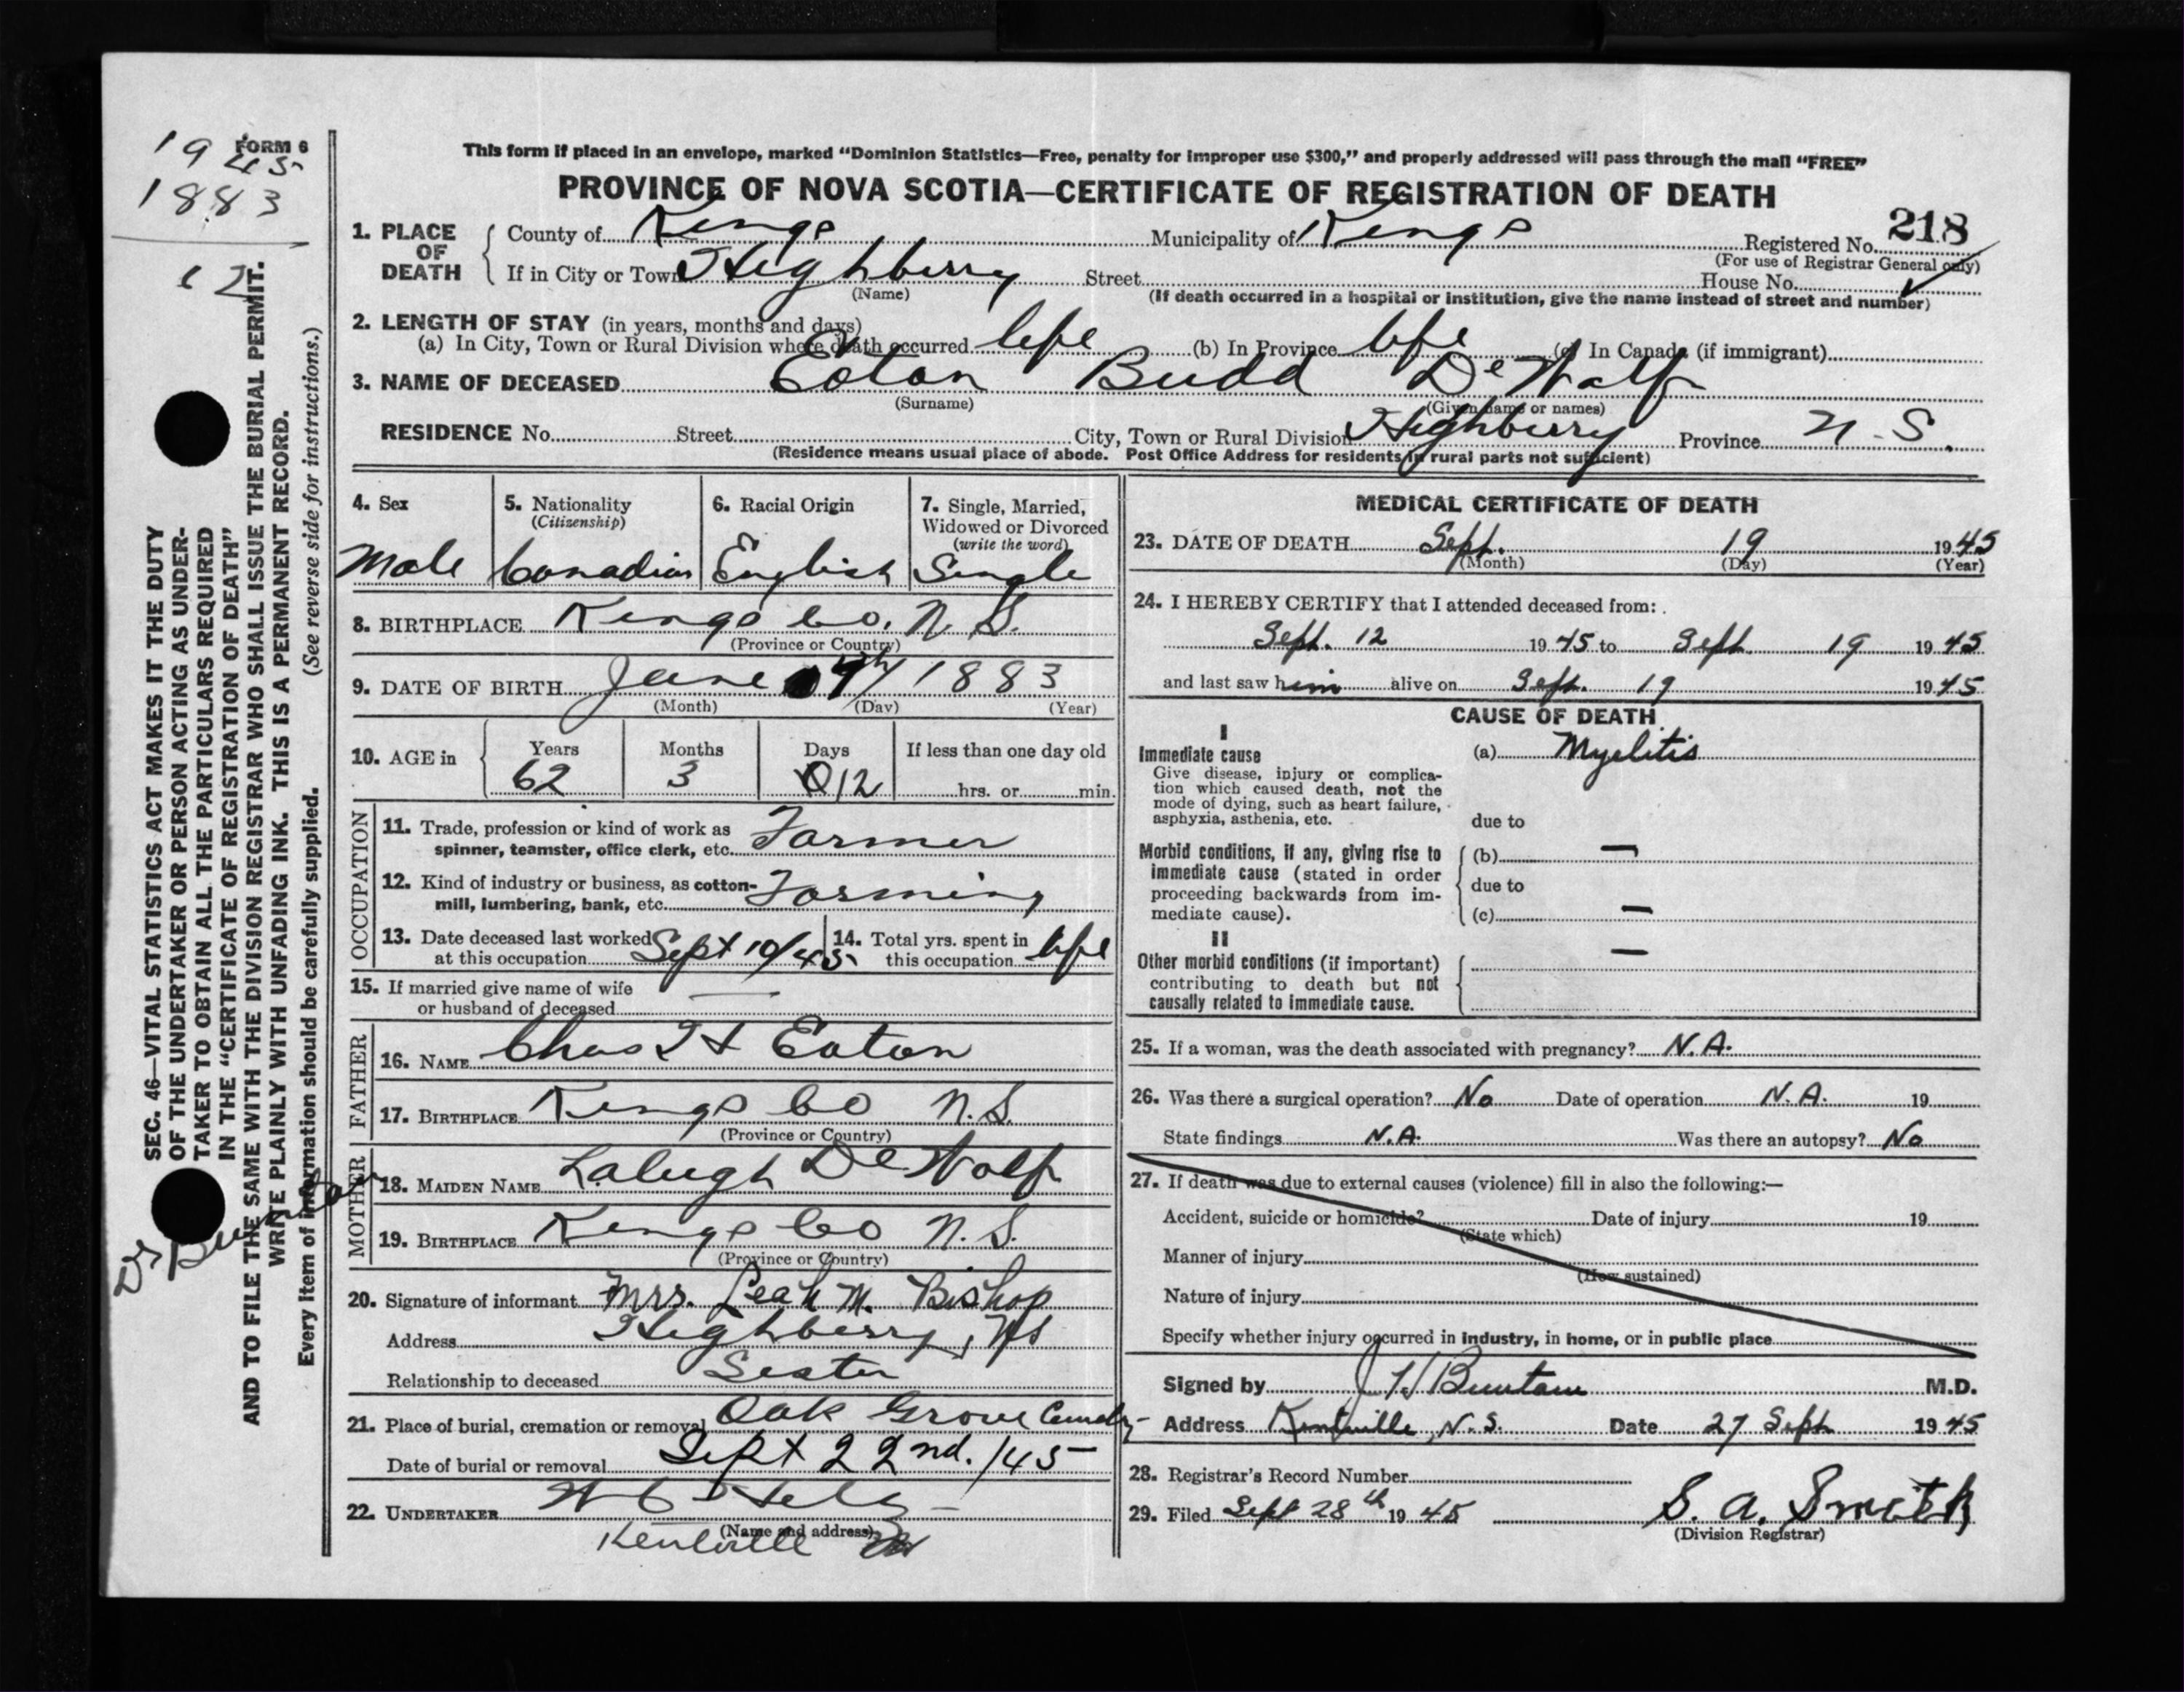 FORM 6
1945
1883
62
This form if placed in an envelope, marked "Dominion Statistics—Free, penalty for improper use $300," and properly addressed will pass through the mail "FREE"
PROVINCE OF NOVA SCOTIA—CERTIFICATE OF REGISTRATION OF DEATH
1. PLACE OF DEATH County of Kings Municipality of Kings Registered No. 218
(For use of Registrar General only)
If in City or Town Highberry Street House No.
(Name) (If death occurred in a hospital or institution, give the name instead of street and number)
2. LENGTH OF STAY (in years, months and days)
(a) In City, Town or Rural Division where death occurred life (b) In Province life (c) In Canada (if immigrant)
3. NAME OF DECEASED Eaton Budd DeWolf
(Surname) (Given name or names)
RESIDENCE No. Street City, Town or Rural Division Highberry Province N.S.
(Residence means usual place of abode. Post Office Address for residents in rural parts not sufficient)
4. Sex Male
5. Nationality (Citizenship) Canadian
6. Racial Origin English
7. Single, Married, Widowed or Divorced (write the word) Single
8. BIRTHPLACE Kings Co. N.S.
(Province or Country)
9. DATE OF BIRTH June 7th 1883
(Month) (Day) (Year)
10. AGE in Years 62 Months 3 Days 12 If less than one day old hrs. or min.
OCCUPATION
11. Trade, profession or kind of work as spinner, teamster, office clerk, etc. Farmer
12. Kind of industry or business, as cotton-mill, lumbering, bank, etc. Farming
13. Date deceased last worked at this occupation Sept 10/45
14. Total yrs. spent in this occupation life
15. If married give name of wife or husband of deceased —
FATHER
16. NAME Chas H Eaton
17. BIRTHPLACE Kings Co N.S.
(Province or Country)
MOTHER
18. MAIDEN NAME Laleigh DeWolf
19. BIRTHPLACE Kings Co N.S.
(Province or Country)
20. Signature of informant Mrs. Leah M. Bishop
Address Highberry, NS
Relationship to deceased Sister
21. Place of burial, cremation or removal Oak Grove Cemetery
Date of burial or removal Sept 22nd. /45
22. UNDERTAKER
(Name and address)
Kentville
MEDICAL CERTIFICATE OF DEATH
23. DATE OF DEATH Sept. 19 1945
(Month) (Day) (Year)
24. I HEREBY CERTIFY that I attended deceased from:
Sept. 12 1945 to Sept. 19 1945
and last saw him alive on Sept. 19 1945
CAUSE OF DEATH
I
Immediate cause (a) Myelitis
Give disease, injury or complication which caused death, not the mode of dying, such as heart failure, asphyxia, asthenia, etc.
due to
Morbid conditions, if any, giving rise to immediate cause (stated in order proceeding backwards from immediate cause).
(b) —
due to
(c) —
II
Other morbid conditions (if important) contributing to death but not causally related to immediate cause. —
25. If a woman, was the death associated with pregnancy? N.A.
26. Was there a surgical operation? No Date of operation N.A. 19
State findings N.A. Was there an autopsy? No
27. If death was due to external causes (violence) fill in also the following:—
Accident, suicide or homicide? Date of injury 19
(State which)
Manner of injury
(How sustained)
Nature of injury
Specify whether injury occurred in industry, in home, or in public place
Signed by J H Buntain M.D.
Address Kentville, N.S. Date 27 Sept 1945
28. Registrar's Record Number
29. Filed Sept 28th 1945 S. A. Smith
(Division Registrar)
SEC. 46—VITAL STATISTICS ACT MAKES IT THE DUTY
OF THE UNDERTAKER OR PERSON ACTING AS UNDER-
TAKER TO OBTAIN ALL THE PARTICULARS REQUIRED
IN THE "CERTIFICATE OF REGISTRATION OF DEATH"
AND TO FILE THE SAME WITH THE DIVISION REGISTRAR WHO SHALL ISSUE THE BURIAL PERMIT.
WRITE PLAINLY WITH UNFADING INK. THIS IS A PERMANENT RECORD.
Every item of information should be carefully supplied. (See reverse side for instructions.)